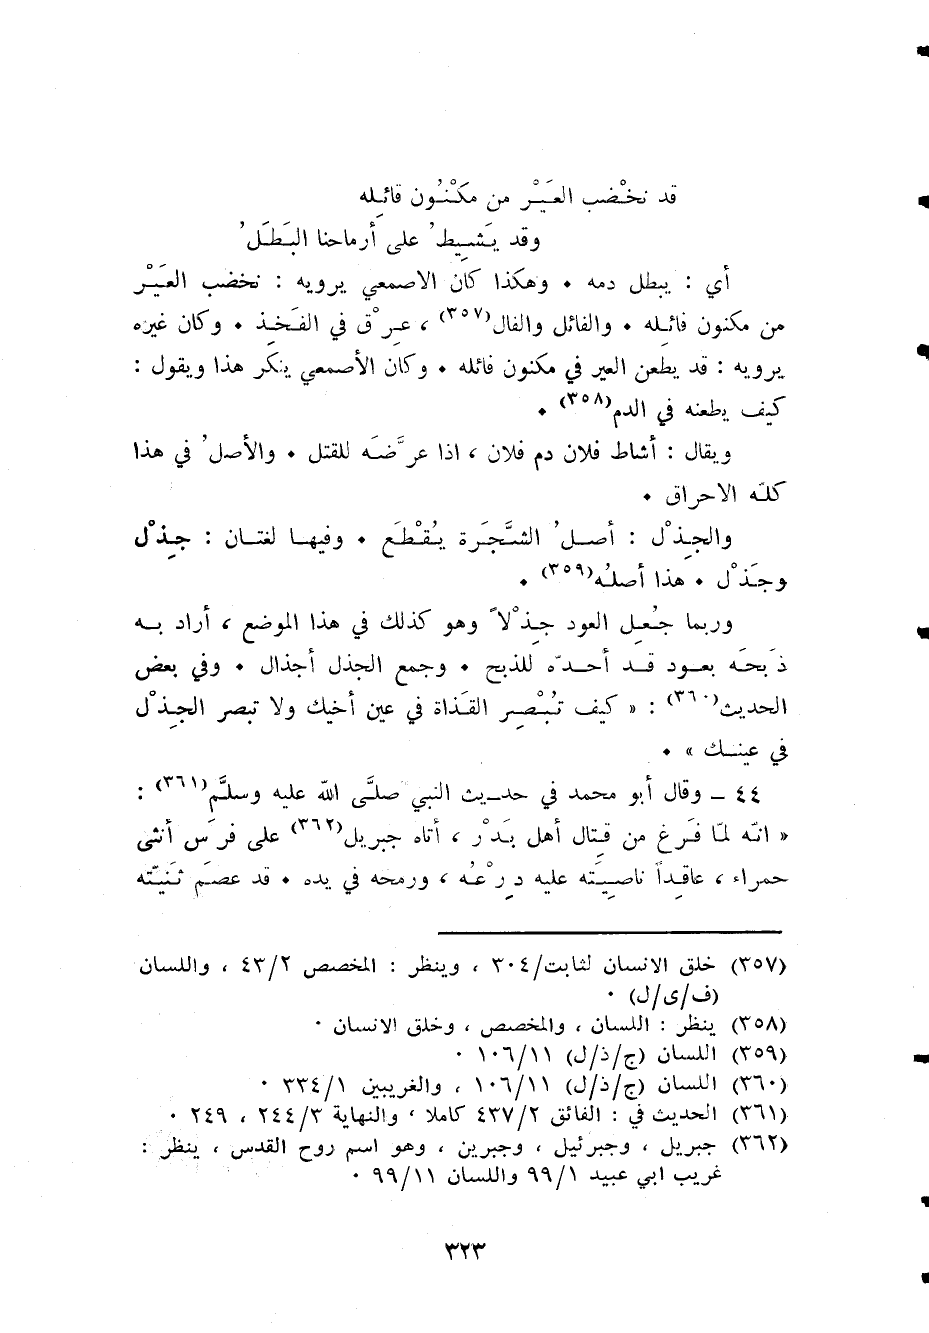 قد نخْضب العَيْر من مكْنُون قائِله
وقد يَشيِط’ على أرماحنا البَطَل’
أي : يبطل دمه . وهكذا كان الاصمعي يرويه : نخضب العَيْر
من مكنون فائِله . والفائل والفال(٣٥٧) ، عِرْق في الفَخِذ . وكان غيره
يرويه : قد يطعن العير في مكنون فائله . وكان الأصمعي ينكر هذا ويقول :
كيف يطعنه في الدم(٣٥٨) .
ويقال : أشاط فلان دم فلان ، اذا عرَّضَه للقتل . والأصل’ في هذا
كلّه الاحراق .
والجِذْل : أصل’ الشَّجَرة يُقْطَع . وفيها لغتان : جِذْل
وجَذْل . هذا أصلُه(٣٥٩) .
وربما جُعِل العود جِذْلاً وهو كذلك في هذا الموضع ، أراد به
ذَبحَه بعود قد أحدّه للذبح . وجمع الجذل أجذال . وفي بعض
الحديث(٣٦٠) : « كيف تُبْصِر القَذاة في عين أخيك ولا تبصر الجِذْل
في عينك » .
٤٤ ـ وقال أبو محمد في حديث النبي صلَّى اللّه عليه وسلَّم(٣٦١) :
« انّه لمّا فَرَغ من قِتال أهل بَدْر ، أتاه جبريل(٣٦٢) على فرَس أنثى
حمراء ، عاقِداً ناصِيَته عليه دِرْعُه ، ورمحه في يده . قد عصَم ثَنِيّته
(٣٥٧) خلق الانسان لثابت/٣٠٤ ، وينظر : المخصص ٤٣/٢ ، واللسان
(ف/ى/ل) .
(٣٥٨) ينظر : اللسان ، والمخصص ، وخلق الانسان .
(٣٥٩) اللسان (ج/ذ/ل) ١٠٦/١١ .
(٣٦٠) اللسان (ج/ذ/ل) ١٠٦/١١ ، والغريبين ٣٣٤/١ .
(٣٦١) الحديث في : الفائق ٤٣٧/٢ كاملا ، والنهاية ٢٤٤/٣ ، ٢٤٩ .
(٣٦٢) جبريل ، وجبرئيل ، وجبرين ، وهو اسم روح القدس ، ينظر :
غريب ابي عبيد ٩٩/١ واللسان ٩٩/١١ .
٣٢٣